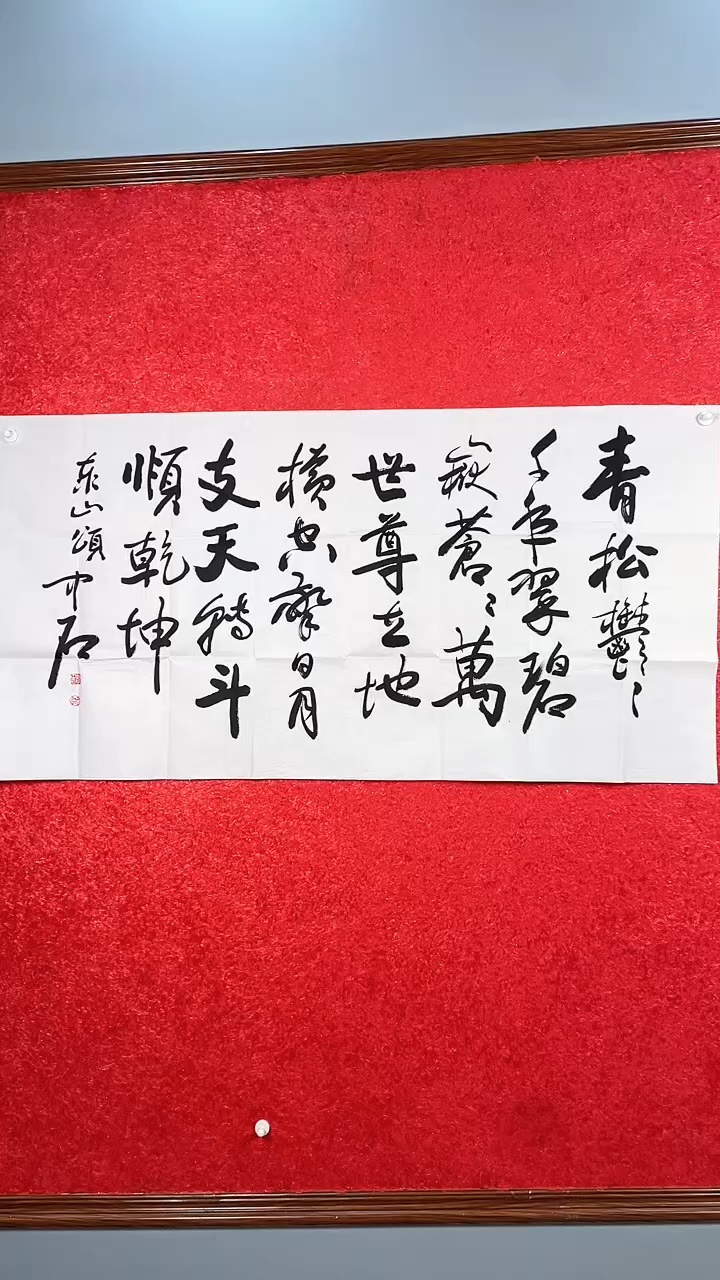 青松鬱〻
千年翠碧
嶔蒼〻萬
世尊立地
横空摩日月
支天轉斗
順乾坤
泰山頌 中石